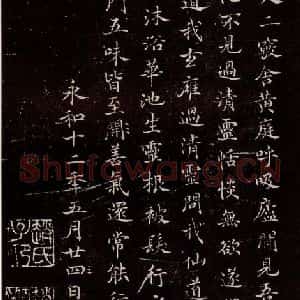 入二竅舍黃庭呼噏廬間見吾
不見過清靈恬惔無欲遂
道我玄雍過清靈問我仙道
沐浴華池生靈根被髮行
門五味皆至開善氣還常能行
永和十二年五月廿四日
Shufawang.CN